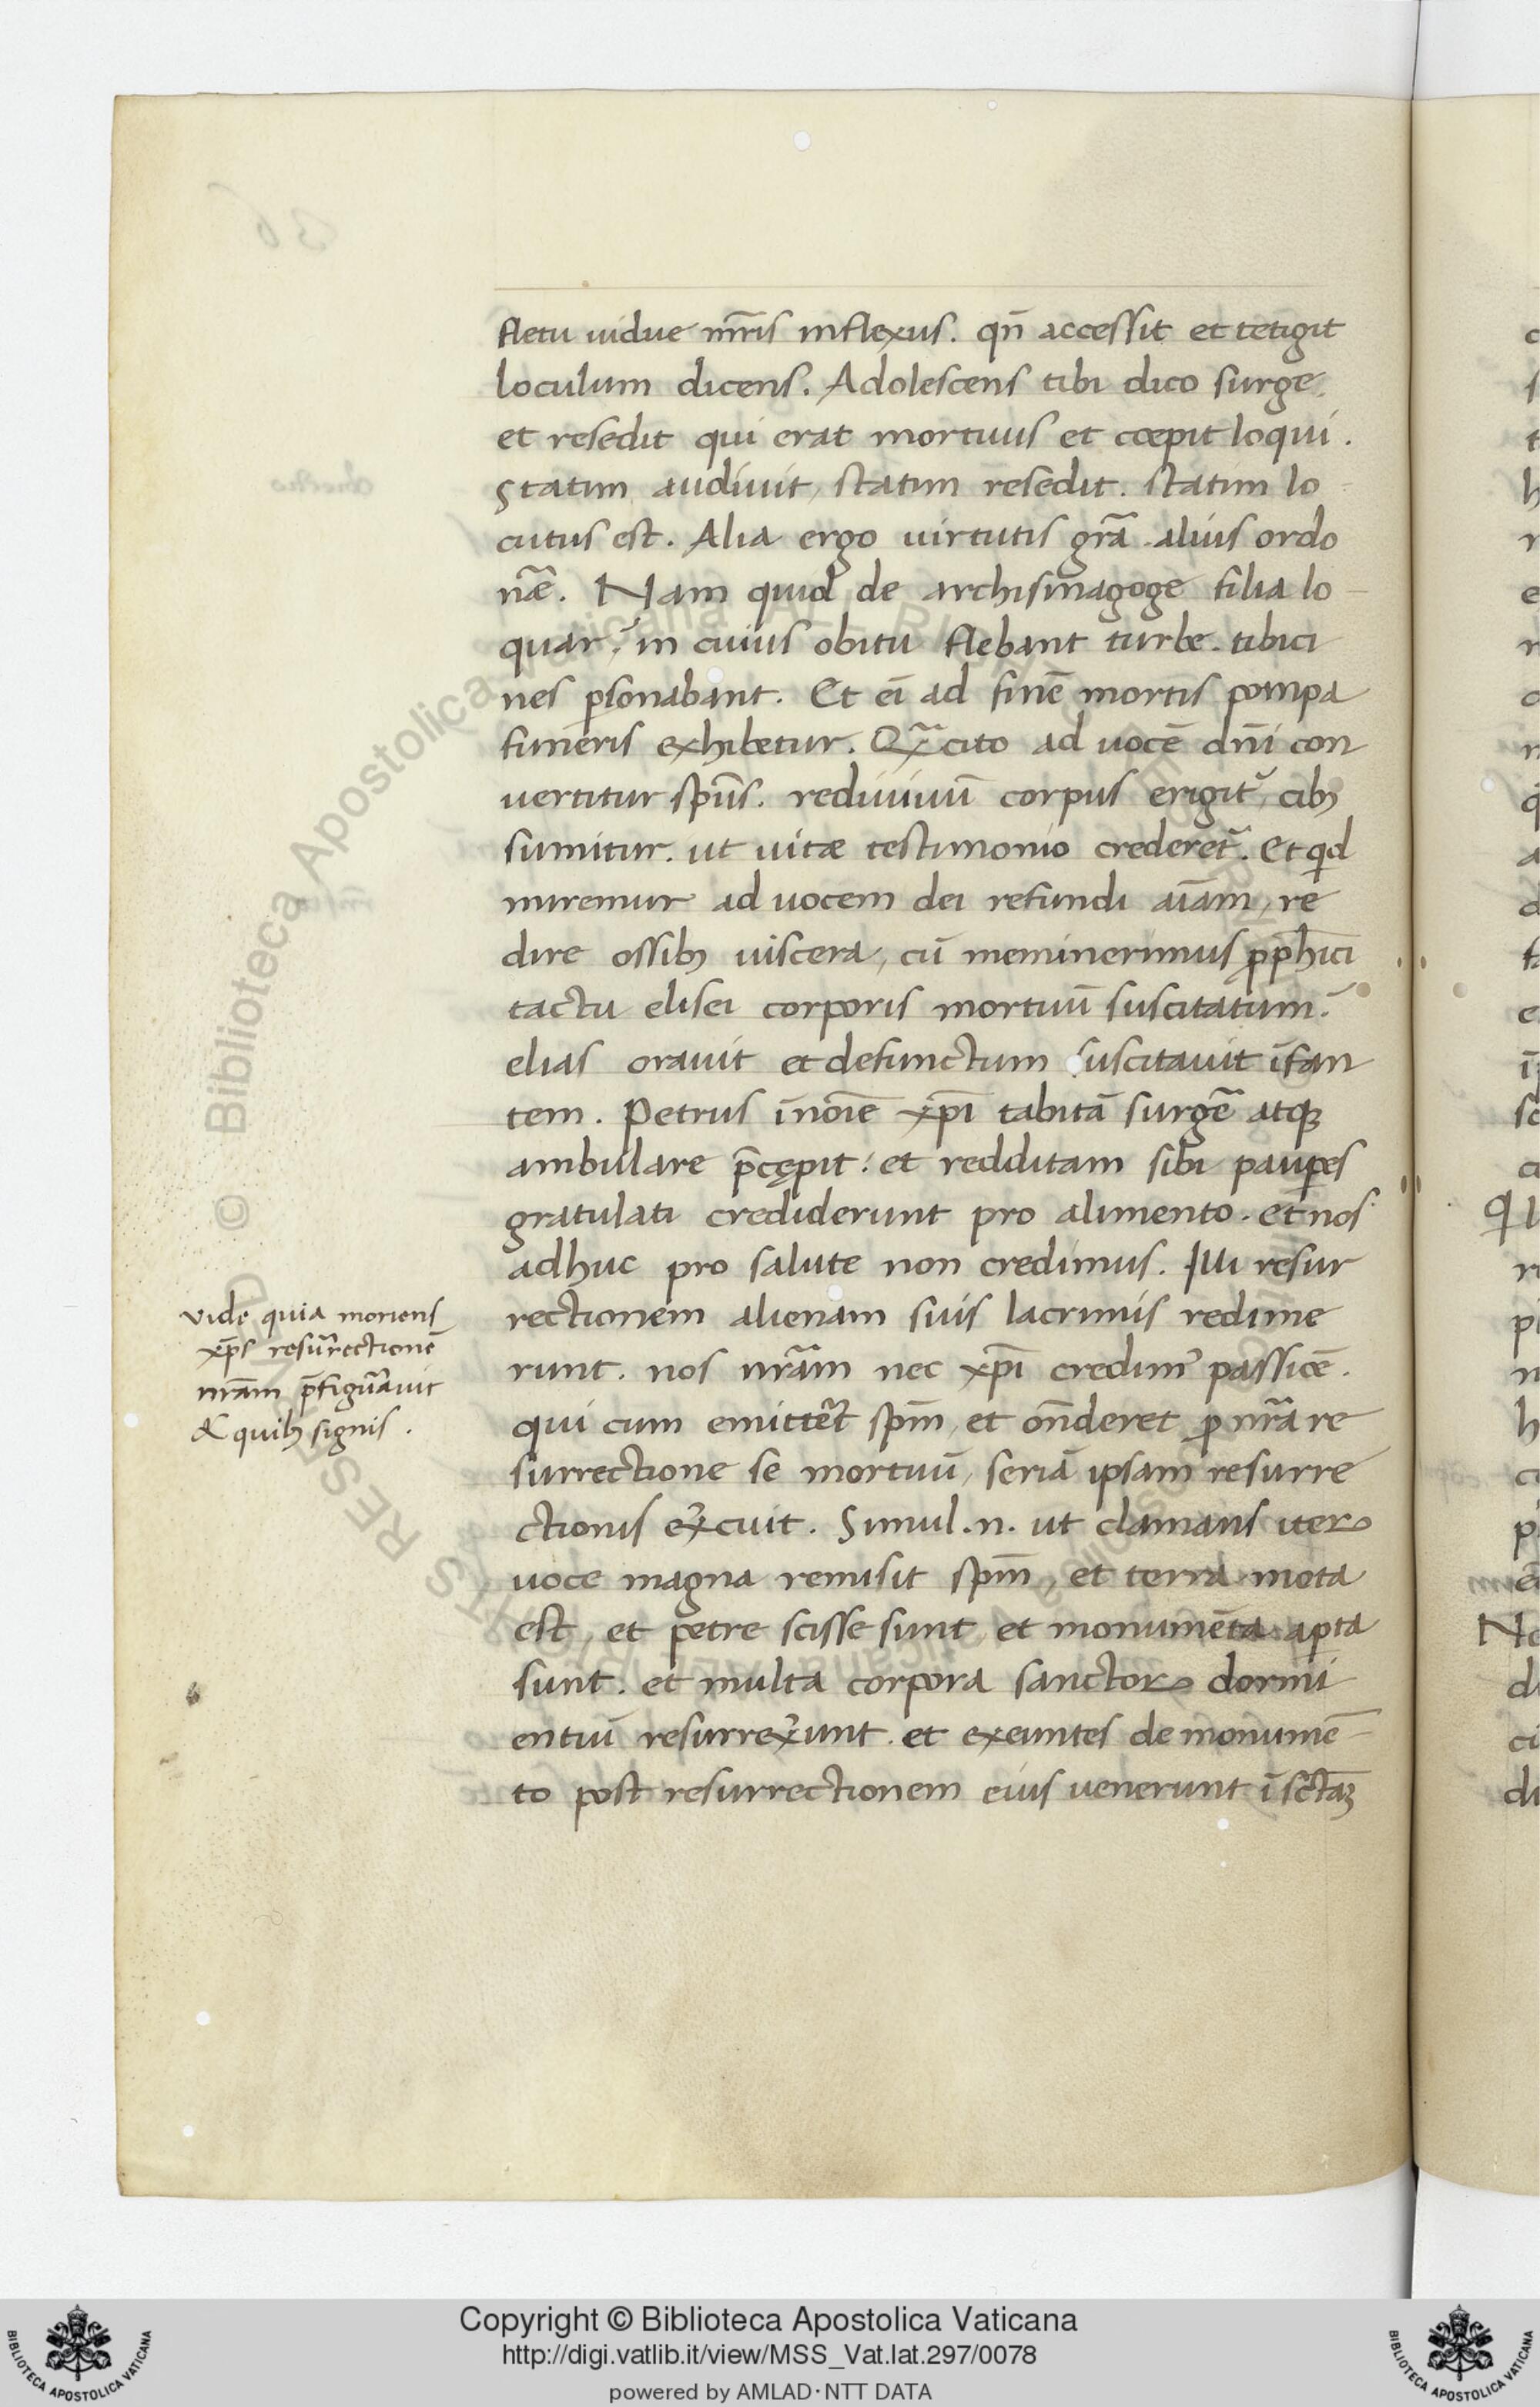 fletu uidue mr̄is inflexus. qn̄ accessit et tetigit
loculum dicens. Adolescens tibi dico surge.
et resedit qui erat mortuus et cœpit loqui.
Statim audiuit, statim resedit. statim lo
cutus est. Alia ergo uirtutis gr̄a. alius ordo
nāe. Nam quid de archisinagoge filia lo-
quar, in cuius obitu flebant turbe. tibici
nes ꝑsonabant. Et eī ad finē mortis pompa
funeris exhibetur. Qᷓ cito ad uocē dn̄i con
uertitur spūs. rediuiuū corpus erigit᷑, cibꝫ
sumitur. ut uitæ testimonio crederet᷑. Et qd
miremur ad uocem dei refundi aīam, re
dire ossibꝫ uiscera, cū meminerimus ꝓph̄ici
tactu elisei corporis mortuū suscitatum?
elias orauit et defunctum suscitauit īfan
tem. Petrus ī noīe xp̄i tabitā surgē̄ atqꝫ
ambulare p̄cępit: et redditam sibi pauꝑes
gratulati crediderunt pro alimento. et nos
adhuc pro salute non credimus. Illi resur
rectionem alienam suis lacrimis redime
runt. nos nr̄am nec xp̄i credimꝰ passiōe.
qui cum emitter̄t spm̄, et on̄deret ꝓ nr̄a re
surrectione se mortuū, seriā ipsam resurre
ctionis ex̄cuit. Simul .n. ut clamans iteꝝ
uoce magna remisit spm̄, et terra mota
est, et petre scisse sunt, et monumēta apta
sunt. et multa corpora sanctoꝝ dormi
entiū resurrex̄unt. et exeuntes de monumē-
to post resurrectionem eius uenerunt ī sctāꝫ
vide quia moriens
xp̄s resurrectionē
nr̄am p̄figurauit
& quibꝫ signis.
Copyright © Biblioteca Apostolica Vaticana
http://digi.vatlib.it/view/MSS_Vat.lat.297/0078
powered by AMLAD·NTT DATA